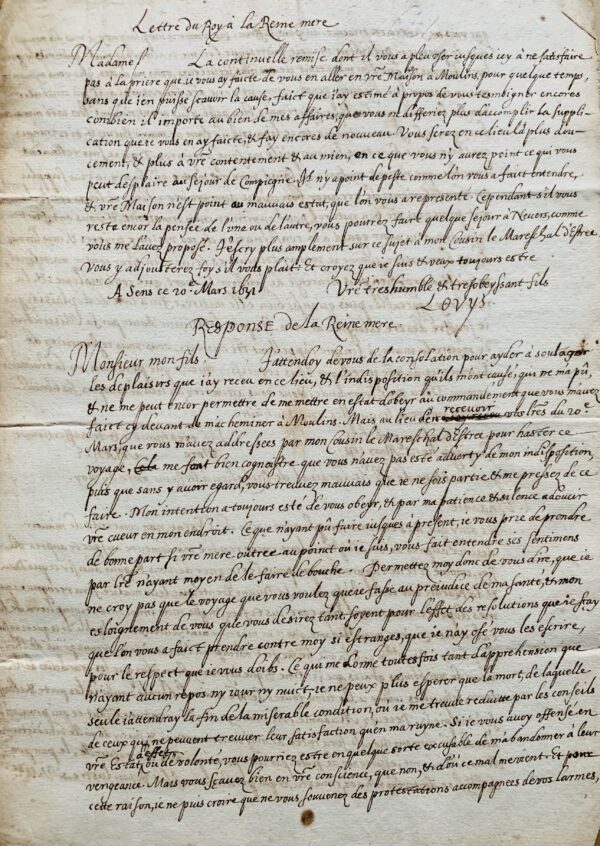 Lettre du Roy à la Reine mere
Madame La continuelle remise dont il vous a pleu user iusques icy à ne satisfaire
pas à la priere que ie vous ay faicte de vous en aller en vre Maison à Moulins, pour quelque temps,
sans que i'en puisse scavoir la cause, faict que i'ay estimé à propos de vous tesmoigner encores
combien il importe au bien de mes affaires, que vous ne differiez plus d'acomplir la suppli-
cation que ie vous en ay faicte, & fay encores de nouveau. Vous serez en ce lieu là plus dou-
cement, & plus à vre contentement & au mien, en ce que vous n'y aurez point ce qui vous
peut desplaire au sejour de Compiegne. Il n'y a point de peste comme l'on vous a faict entendre,
& vre Maison n'est point au mauvais estat, que l'on vous a representé. Cependant s'il vous
reste encor la pensée de l'une ou de l'autre, vous pourrez faire quelque sejour à Nevers, comme
vous me l'avez proposé. J'escry plus amplement sur ce sujet à mon Cousin le Mareschal d'Estrée
Vous y adjousterez foy s'il vous plait: Et croyez que ie suis & veux toujours estre
A Sens ce 20e. Mars 1631 Vre tres humble & tres obeyssant fils
LOVYS
RESPONSE de la Reine mere
Monsieur mon fils J'attendoy de vous de la consolation pour ayder à soulager
les deplaisirs que i'ay receu en ce lieu, & l'indisposition qu'ils m'ont causé, qui ne m'a pû,
& ne me peut encor permettre de me mettre en estat d'obeyr au commandement que vous m'avez
faict cy devant de m'acheminer à Moulins. Mais au lieu d'en recevoir vos lres du 20e.
Mars, que vous m'avez addressées par mon Cousin le Mareschal d'Estrée pour haster ce
voyage, me font bien cognoistre que vous n'avez pas esté adverty de mon indisposition,
puis que sans y avoir egard, vous treuvez mauvais que ie ne sois partie & me pressez de ce
faire. Mon intention a toujours esté de vous obeyr, & par ma patience & silence adoucir
vre cueur en mon endroit. Ce que n'ayant pû faire iusques a present, ie vous prie de prendre
de bonne part si vre mere outrée au poinct où ie suis, vous fait entendre ses sentimens
par lre n'ayant moyen de le faire de bouche. Permettez moy donc de vous dire, que ie
ne croy pas que le voyage que vous voulez que ie fasse au prejudice de ma santé, & mon
esloignement de vous que vous desirez tant, soyent pour l'effet des resolutions que
que l'on vous a faict prendre contre moy si estranges, que ie n'ay osé vous les escrire,
pour le respect que ie vous doibs. Ce qui me donne toutesfois tant d'apprehension que
n'ayant aucun repos ny iour ny nuict, ie ne peux plus esperer que la mort, de laquelle
seule i'attendray la fin de la miserable condition, où ie me treuve reduitte par les conseils
de ceux qui ne peuvent treuver leur satisfaction qu'en ma ruyne. Si ie vous avoy offensé en
vre Estat, d'effect, ou de volonté, vous pourriez estre en quelque sorte excusable de m'abandonner à leur
vengeance. Mais vous scavez bien en vre conscience, que non, & d'où ce mal me vient. Et pour
cette raison, ie ne puis croire que ne vous souvenez des protestations accompagnées de vos larmes,